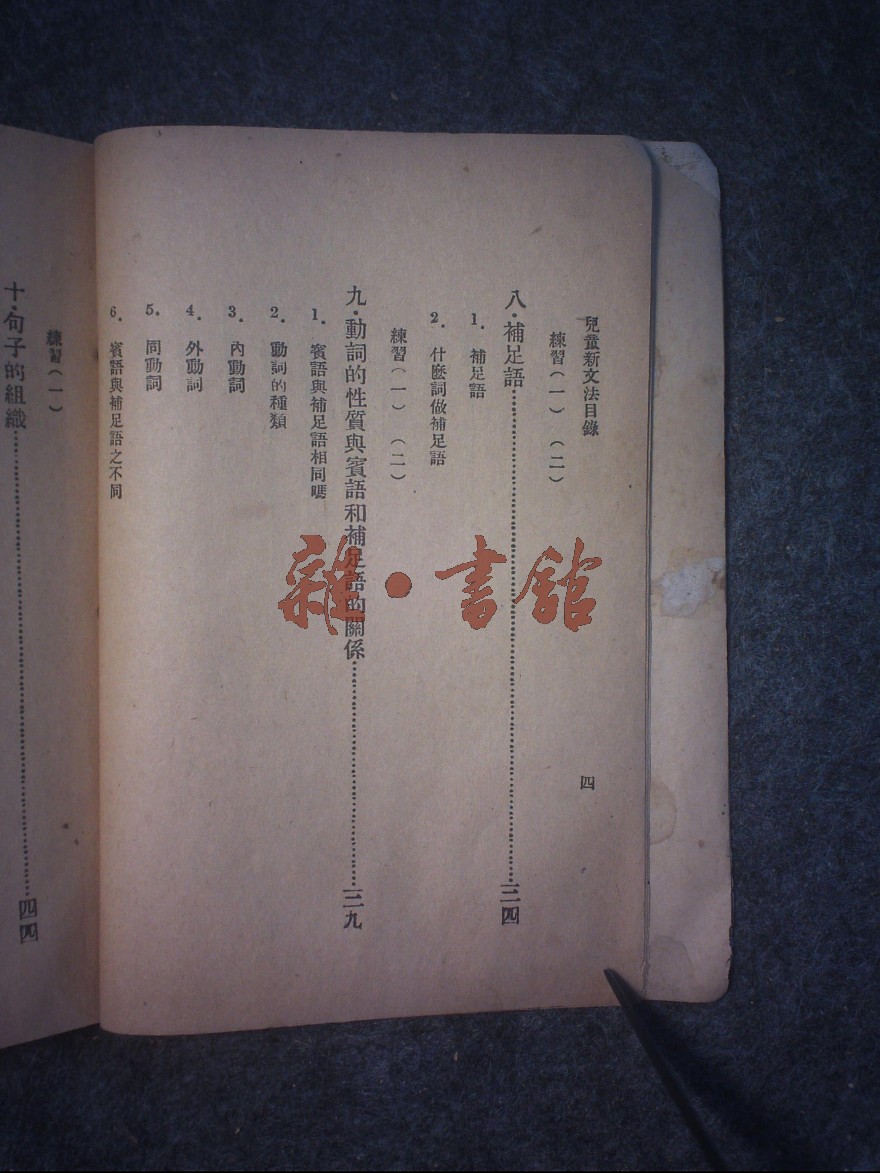 兒童新文法目錄 四
練習(一) (二)
八·補足語……三四
1. 補足語
2. 什麼詞做補足語
練習(一) (二)
九·動詞的性質與賓語和補足語的關係……三九
1. 賓語與補足語相同嗎
2. 動詞的種類
3. 內動詞
4. 外動詞
5. 同動詞
6. 賓語與補足語之不同
練習(一)
十·句子的組織……四四
雜·書館